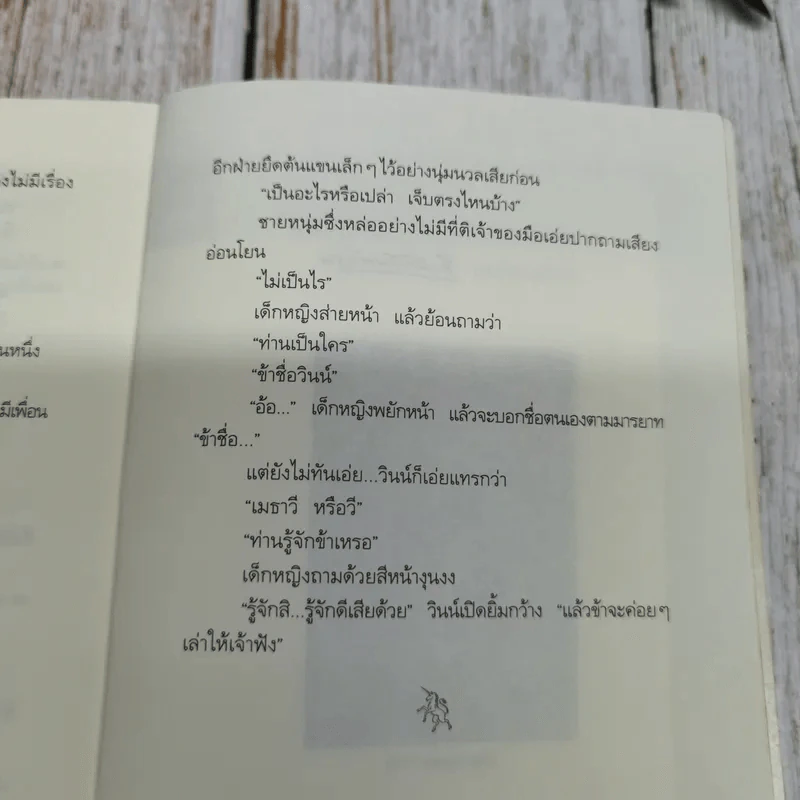 งไม่มีเรื่อง
นหนึ่ง
มีเพื่อน
อีกฝ่ายยึดต้นแขนเล็กๆ ไว้อย่างนุ่มนวลเสียก่อน
“เป็นอะไรหรือเปล่า เจ็บตรงไหนบ้าง”
ชายหนุ่มซึ่งหล่ออย่างไม่มีที่ติเจ้าของมือเอ่ยปากถามเสียง
อ่อนโยน
“ไม่เป็นไร”
เด็กหญิงส่ายหน้า แล้วย้อนถามว่า
“ท่านเป็นใคร”
“ข้าชื่อวินน์”
“อ้อ...” เด็กหญิงพยักหน้า แล้วจะบอกชื่อตนเองตามมารยาท
“ข้าชื่อ...”
แต่ยังไม่ทันเอ่ย...วินน์ก็เอ่ยแทรกว่า
“เมธาวี หรือวี”
“ท่านรู้จักข้าเหรอ”
เด็กหญิงถามด้วยสีหน้างุนงง
“รู้จักสิ...รู้จักดีเสียด้วย” วินน์เปิดยิ้มกว้าง “แล้วข้าจะค่อยๆ
เล่าให้เจ้าฟัง”